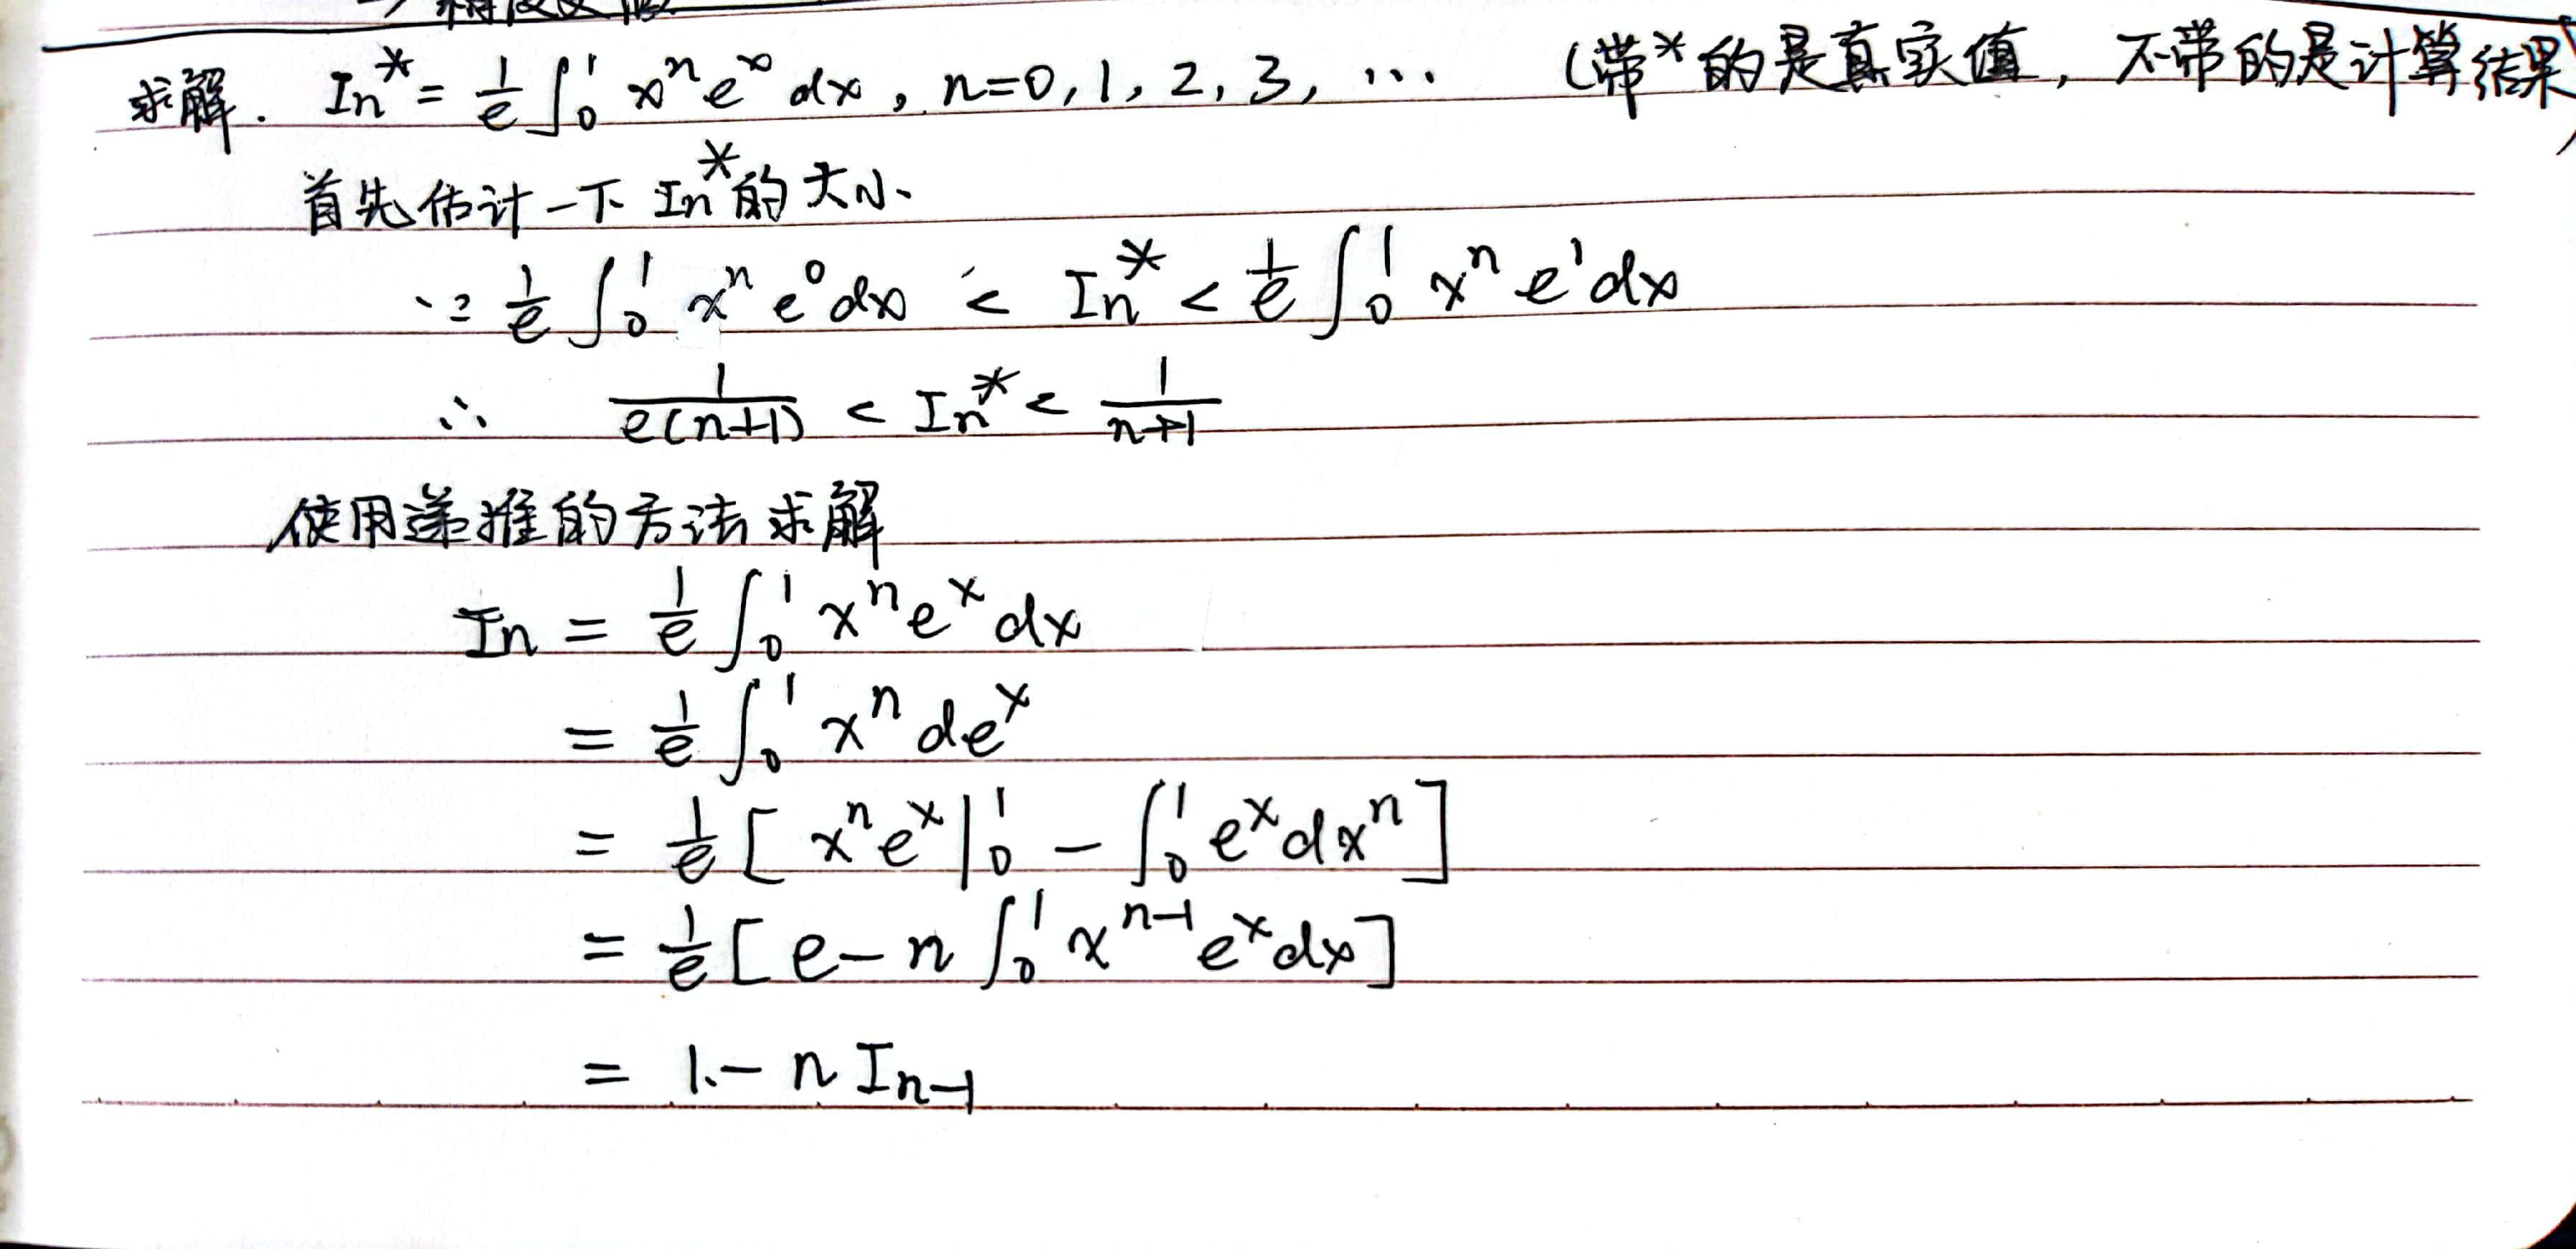 求解. In* = 1/e ∫₀¹ xⁿeˣ dx, n=0, 1, 2, 3, … (带*的是真实值, 不带的是计算结果)
首先估计一下 In*的大小
∵ 1/e ∫₀¹ xⁿ e⁰ dx < In* < 1/e ∫₀¹ xⁿ e¹ dx
∴ 1/e(n+1) < In* < 1/n+1
使用递推的方法求解
In = 1/e ∫₀¹ xⁿeˣ dx
= 1/e ∫₀¹ xⁿ deˣ
= 1/e [ xⁿeˣ|₀¹ − ∫₀¹ eˣdxⁿ ]
= 1/e [ e − n ∫₀¹ xⁿ⁻¹eˣdx ]
= 1 − n Iₙ₋₁